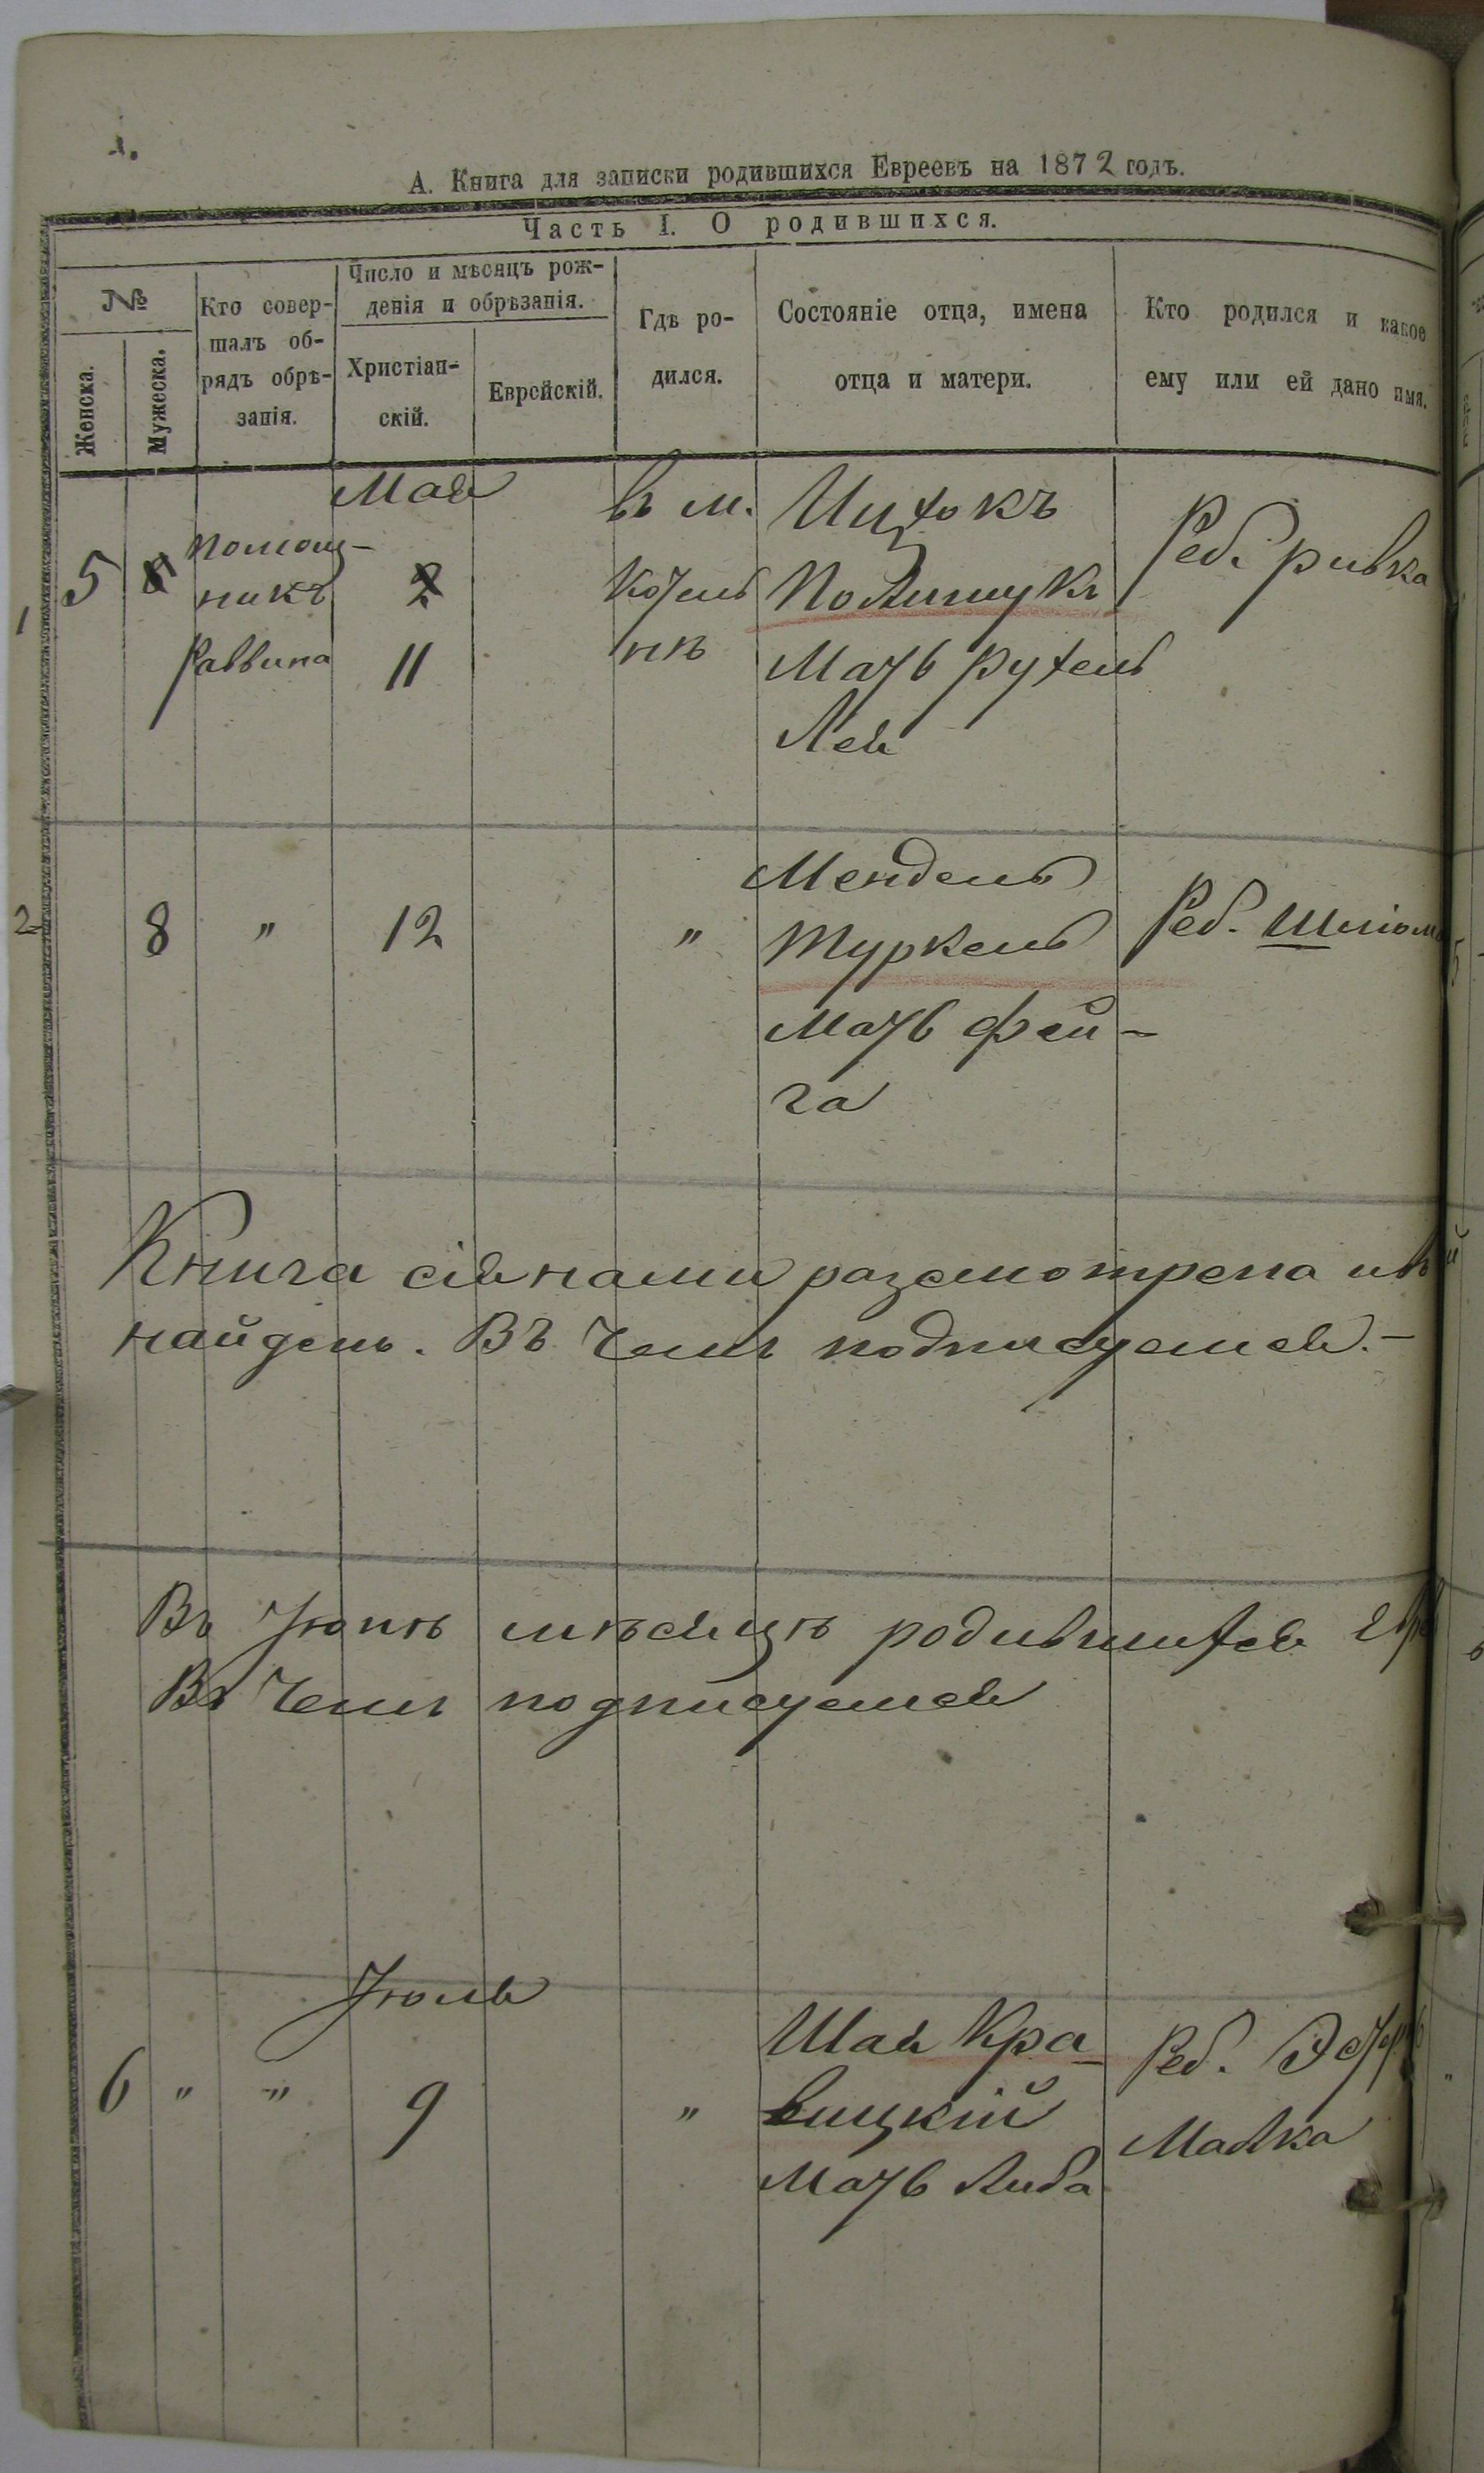 1.
А. Книга для записки родившихся Евреевъ на 1872 годъ.
Часть I. О родившихся.
№
Женска.
Мужеска.
Кто совер-
шалъ об-
рядъ обрѣ-
занія.
Число и мѣсяцъ рож-
денія и обрѣзанія.
Христіан-
скій.
Еврейскій.
Гдѣ ро-
дился.
Состояніе отца, имена
отца и матери.
Кто родился и какое
ему или ей дано имя.
1
5
помощ-
никъ
Раввина
Мая
11
въ м.
Котель
нѣ
Ицхокъ
Полищукъ
Мать Рухель
Лея
Реб. Ривка
2
8
"
12
"
Мендель
Туркель
Мать Фей-
га
Реб. Шліома
Книга сія нами разсмотрена и
найдень. Въ чемъ подписуемся.-
Въ Іюнѣ мѣсяцѣ родившихся
Въ чемъ подписуемся
Іюля
6
"
"
9
"
Шая Кра-
вицкій
Мать Либа
Реб.
Малка